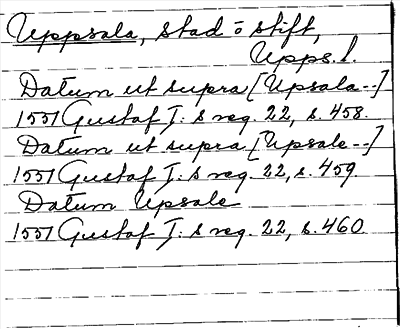 Uppsala, stad o stift,
Upps. l.
Datum ut supra [Upsala--]
1551 Gustaf I: s reg. 22, s. 458.
Datum ut supra [Upsale--]
1551 Gustaf I: s reg. 22, s. 459
Datum Upsale
1551 Gustaf I: s reg. 22, s. 460.